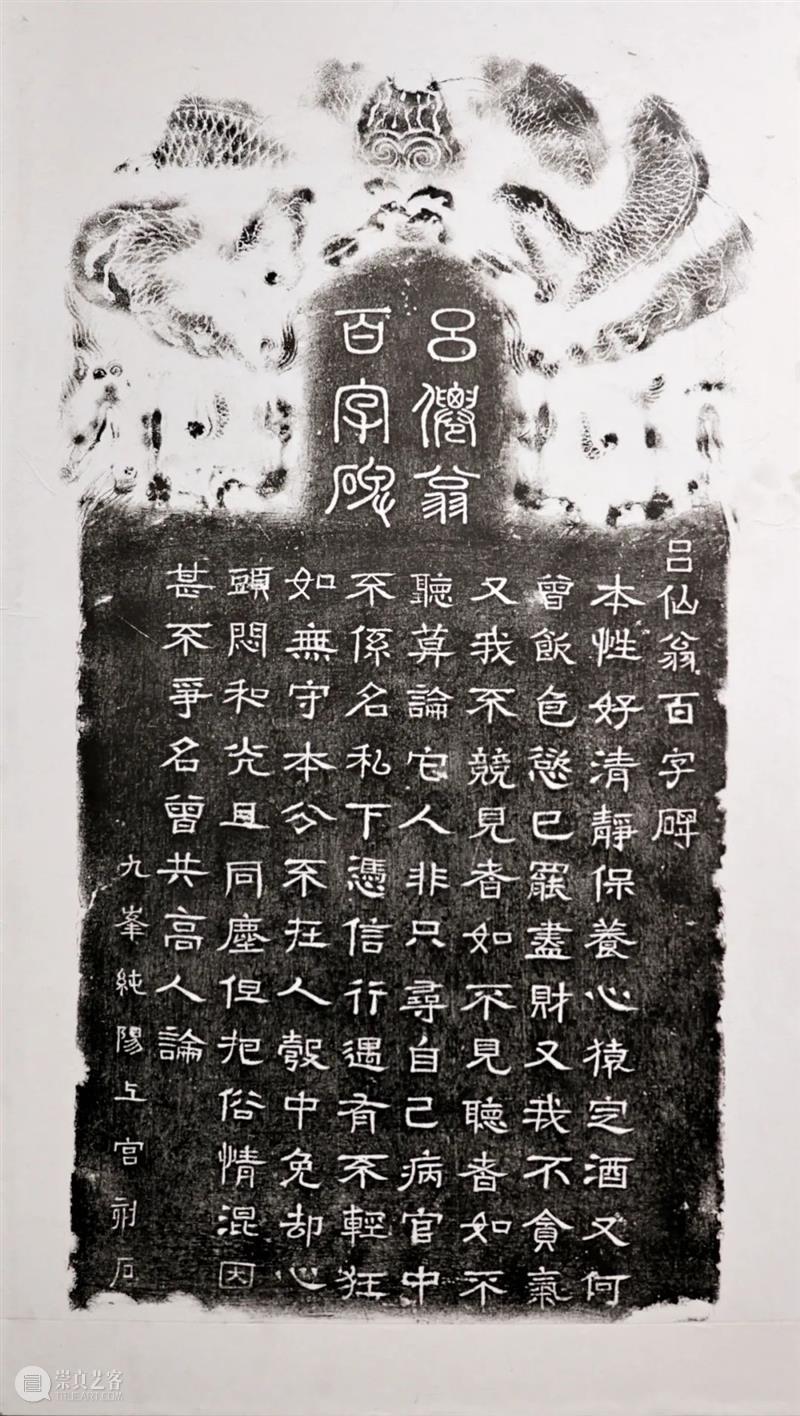 呂僊翁
百字碑
吕仙翁百字碑
本性好清靜保養心猿定酒又何
曾飲色慾已罷盡財又我不貪氣
又我不競見者如不見聽者如不
聽莫論它人非只尋自己病官中
不係名私下憑信行遇有不輕狂
如無守本分不在人彀中免却心
頭悶和光且同塵但把俗情混因
甚不爭名曾共高人論
九峯純陽上宮刻石
崇真艺客